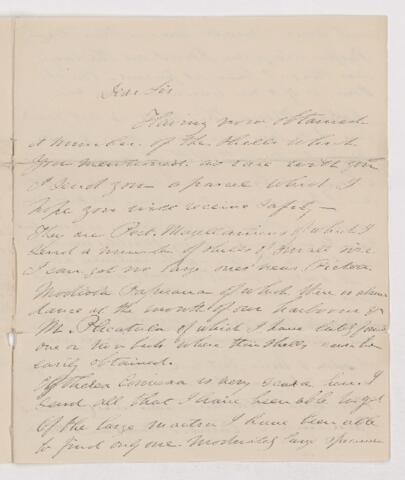 Dear Sir
Having now obtained
a number of the shells which
you mentioned as rare with you
I send you a parcel which I
hope you will receive safely –
They are Pect. Magellanicus of which I
send a number of shells of small size
I can get no large ones near Pictou
Modiola Papuana of which there is abun
dance at the mouth of our harbour &
M. Plicatula of which I have lately found
one or two beds where the shells can be
easily obtained.
Of Thracia Conradi is very scarce here. I
send all that I have been able to get
Of the large mactra I have been able
to find only one moderately large specimen